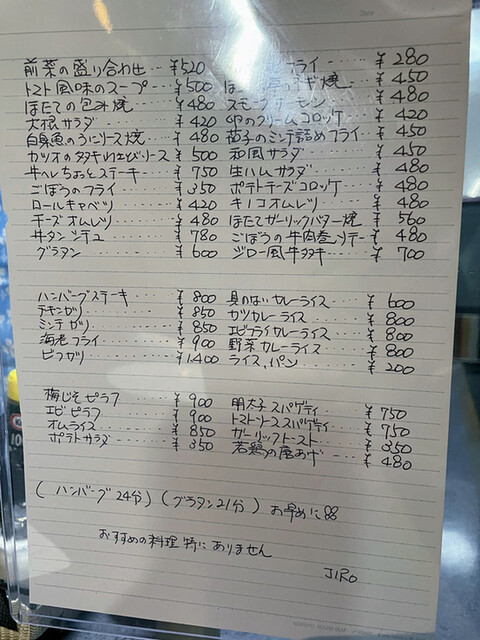 前菜の盛り合わせ ¥520
トマト風味のスープ ¥500
ほたての包み焼 ¥480
大根サラダ ¥420
白身魚のうにソース焼 ¥480
カツオのタタキわさびソース ¥500
牛ヘレちょっとステーキ ¥750
ごぼうのフライ ¥350
ロールキャベツ ¥420
チーズオムレツ ¥480
牛タンシチュ ¥780
グラタン ¥600
フライ ¥280
焼 ¥450
スモークサーモン ¥480
卵のクリームコロッケ ¥420
茄子のミンチ詰めフライ ¥450
和風サラダ ¥450
生ハムサラダ ¥480
ポテトチーズコロッケ ¥480
キノコオムレツ ¥480
ほたてガーリックバター焼 ¥560
ごぼうの牛肉巻ソテー ¥480
ジロー風牛タタキ ¥700
ハンバーグステーキ ¥800
チキンカツ ¥850
ミンチカツ ¥850
海老フライ ¥900
ビフカツ ¥1400
具のないカレーライス ¥600
カツカレーライス ¥800
エビフライカレーライス ¥800
野菜カレーライス ¥800
ライス、パン ¥200
梅じそピラフ ¥900
エビピラフ ¥900
オムライス ¥850
ポテトサラダ ¥350
明太子スパゲティ ¥750
トマトソーススパゲティ ¥750
ガーリックトースト ¥350
若鶏の唐あげ ¥480
(ハンバーグ24分)(グラタン21分) お早めに
おすすめの料理特にありません
JIRO